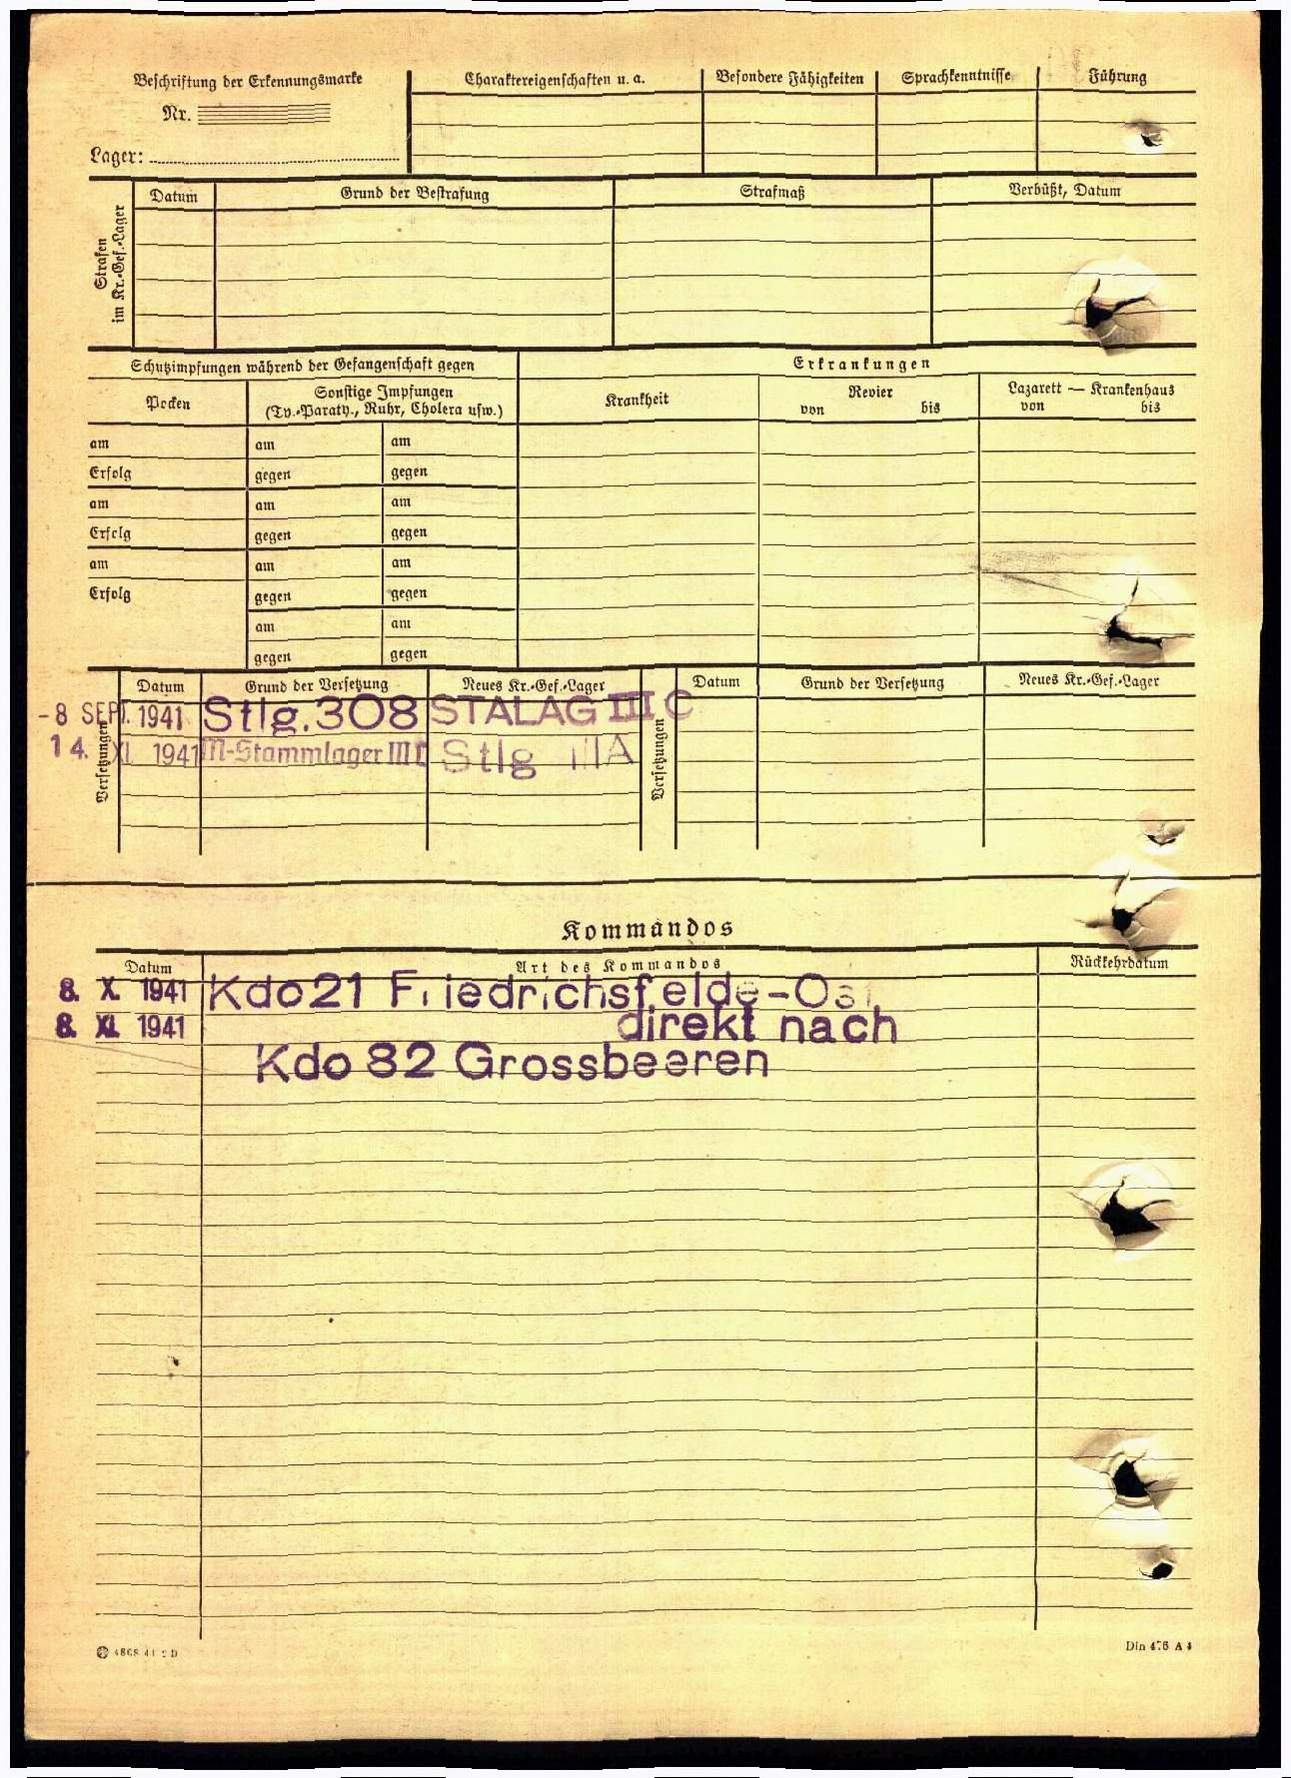 Beschriftung der Erkennungsmarke
Nr.
Lager:
Charaktereigenschaften u. a.
Besondere Fähigkeiten
Sprachkenntnisse
Führung
Strafen
im Kr.-Gef.-Lager
Datum
Grund der Bestrafung
Strafmaß
Verbüßt, Datum
Schutzimpfungen während der Gefangenschaft gegen
Erkrankungen
Pocken
Sonstige Impfungen
(Ty.-Paraty., Ruhr, Cholera usw.)
Krankheit
Revier
von bis
Lazarett — Krankenhaus
von bis
am am am
Erfolg gegen gegen
am am am
Erfolg gegen gegen
am am am
Erfolg gegen gegen
am am
gegen gegen
Versetzungen
Datum Grund der Versetzung Neues Kr.-Gef.-Lager
-8 SEPT. 1941 Stlg. 308 STALAG III C
14. XI. 1941 M-Stammlager III Stlg IIIA
Versetzungen
Datum Grund der Versetzung Neues Kr.-Gef.-Lager
Kommandos
Datum Art des Kommandos Rückkehrdatum
8. X. 1941 Kdo 21 Friedrichsfelde-Ost
8. XI. 1941 direkt nach
Kdo 82 Grossbeeren
Din 476 A 4